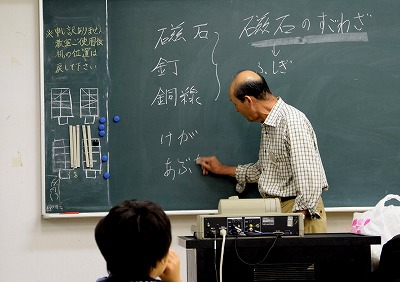 ※申し訳ありませんが
教室ご使用後
机の位置は
戻して下さい
磁石
釘
銅線
けが
あぶ
磁石のすごわざ
ふしぎ